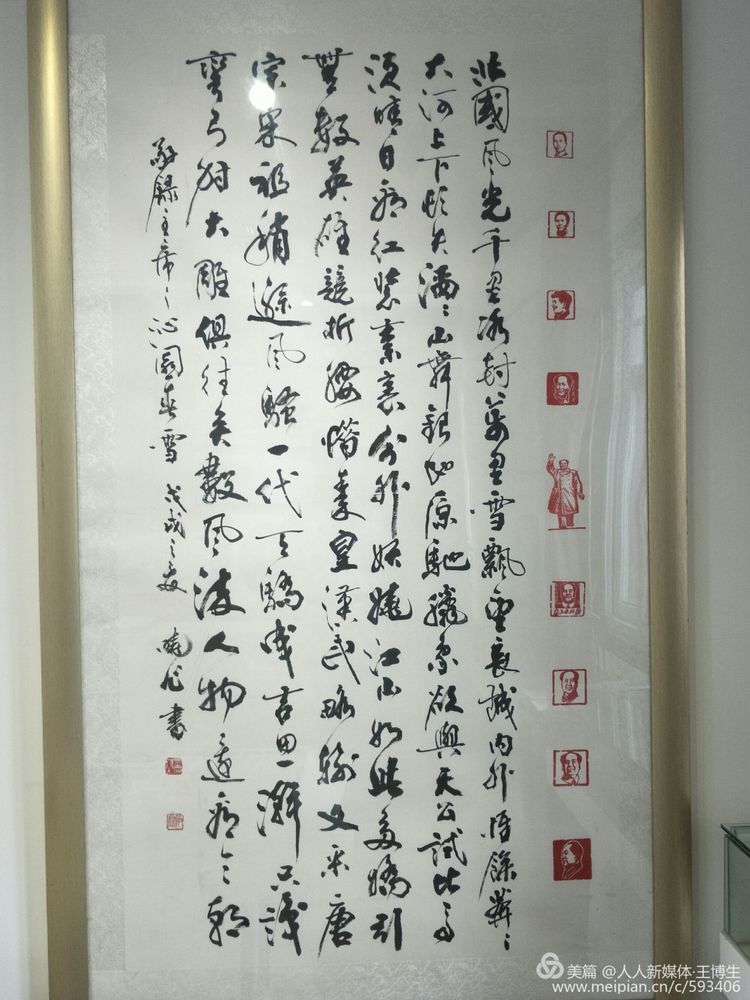 北國風光千里冰封萬里雪飄望長城内外惟餘莽々
大河上下頓失滔々山舞銀蛇原馳蠟象欲與天公試比高
須晴日看紅裝素裹分外妖嬈江山如此多嬌引
無數英雄競折腰惜秦皇漢武略輸文采唐
宗宋祖稍遜風騷一代天驕成吉思只識
彎弓射大雕俱往矣數風流人物還看今朝
敬錄主席之沁園春雪 戊戌之夏 書
美篇 @人人新媒体·王博生
www.meipian.cn/c/593406